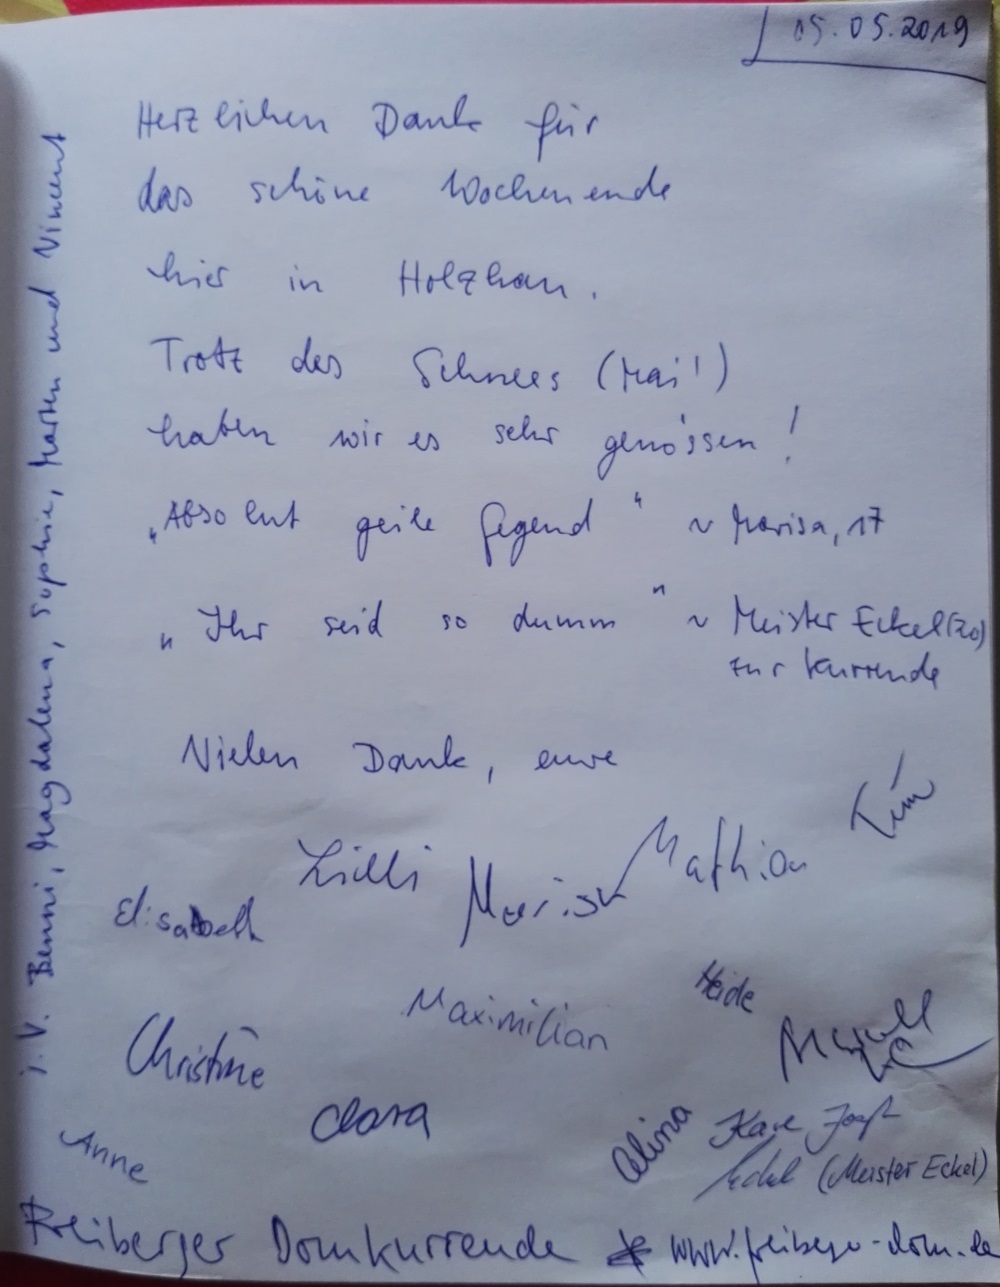 05.05.2019
Herzlichen Dank für
das schöne Wochenende
hier in Holzhau.
Trotz des Schnees (Mai!)
haben wir es sehr genossen!
„Absolut geile Gegend" ~ Marisa, 17
„Ihr seid so dumm" ~ Meister Eckel (20)
zur Kurrende
Vielen Dank, eure
Tim
Lilli Marisa Mathias
Elisabeth
Heide
Maximilian
Christine
Clara
Celina
Anne
(Meister Eckel)
Freiberger Domkurrende * www.freiberger-dom.de
i.V. Benni, Magdalena, Sophie, Marten und Vincent